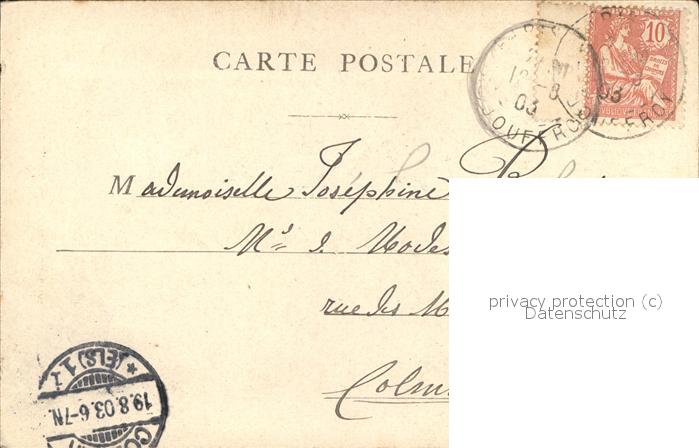 CARTE POSTALE
10
03
JOUFFROY
Mademoiselle Joséphine
Mde de Modes
rue des M
Colm
privacy protection (c)
Datenschutz
(ELS) 1
19.8.03.6-7N.
CO